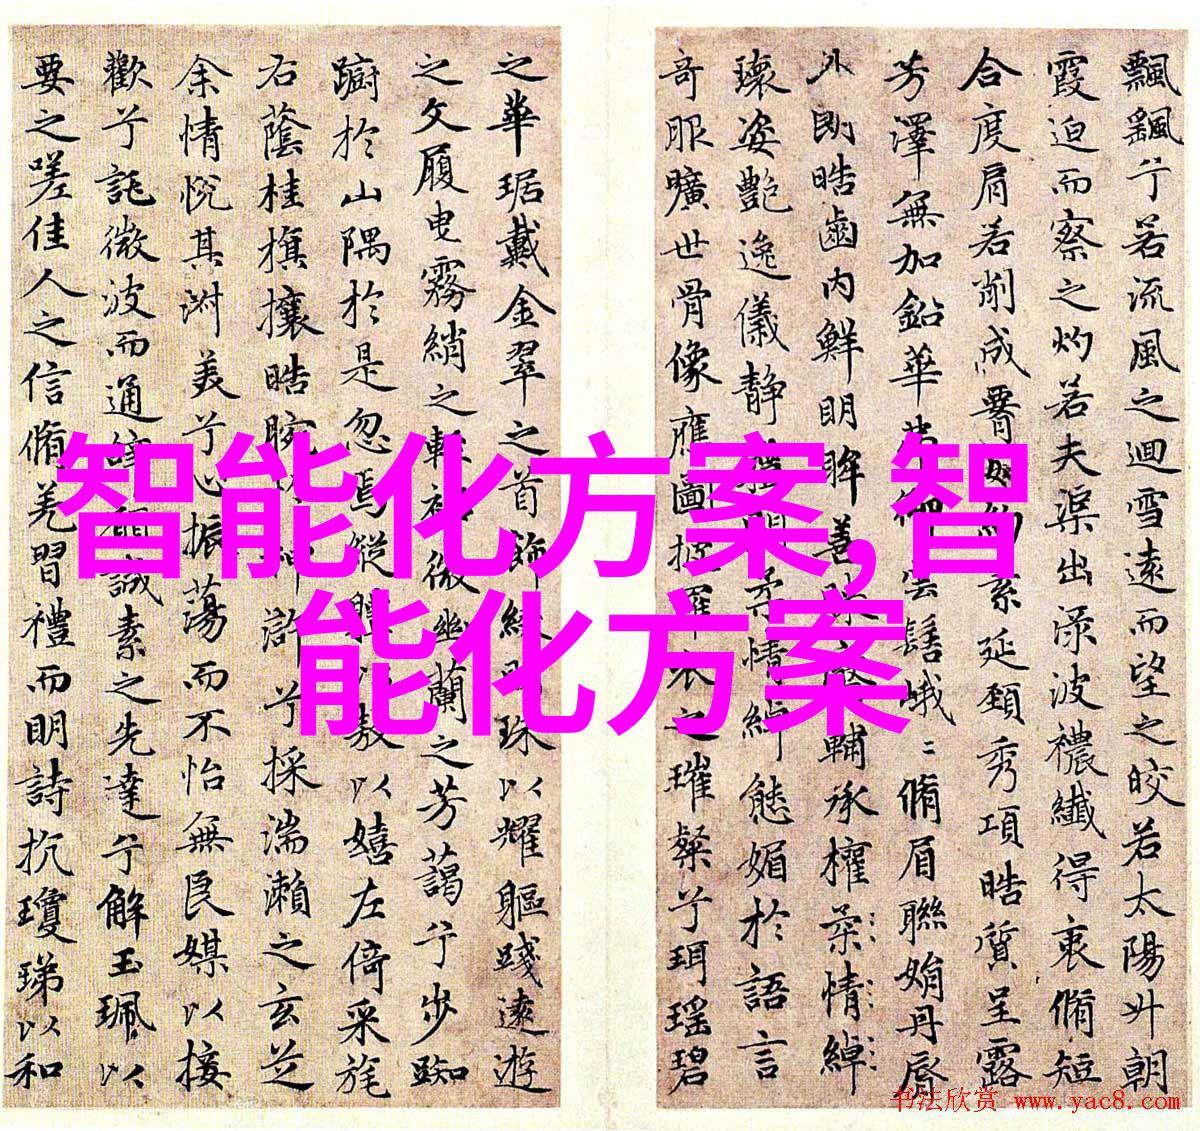 飄飖兮若流風之迴雪遠而望之皎若太陽升朝
霞迫而察之灼若夫渠出淥波襛纖得衷脩短
合度肩若削成腰如約素延頸秀項皓質呈露
芳澤無加鉛華弗御雲髻峨〻脩眉聯娟丹唇
外朗皓齒內鮮明眸善睞靨輔承權柔情綽
瓌姿艷逸儀靜體閑柔情綽態媚於語言
奇服曠世骨像應圖披羅衣之璀粲兮珥瑤碧
之華琚戴金翠之首飾綴明珠以耀軀踐遠遊
之文履曳霧綃之輕裾微幽蘭之芳藹兮步踟
躕於山隅於是忽焉縱體以遨以嬉左倚采旄
右蔭桂旗攘皓腕於神滸兮採湍瀨之玄芝
余情悅其淑美兮心振蕩而不怡無良媒以接
歡兮託微波而通辭願誠素之先達兮解玉珮以
要之嗟佳人之信脩羌習禮而明詩抗瓊珶以和
智能化方案,智
能化方案
书法欣赏 www.yac8.com